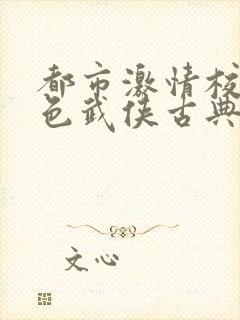 都市激情校
色武侠古典
文心